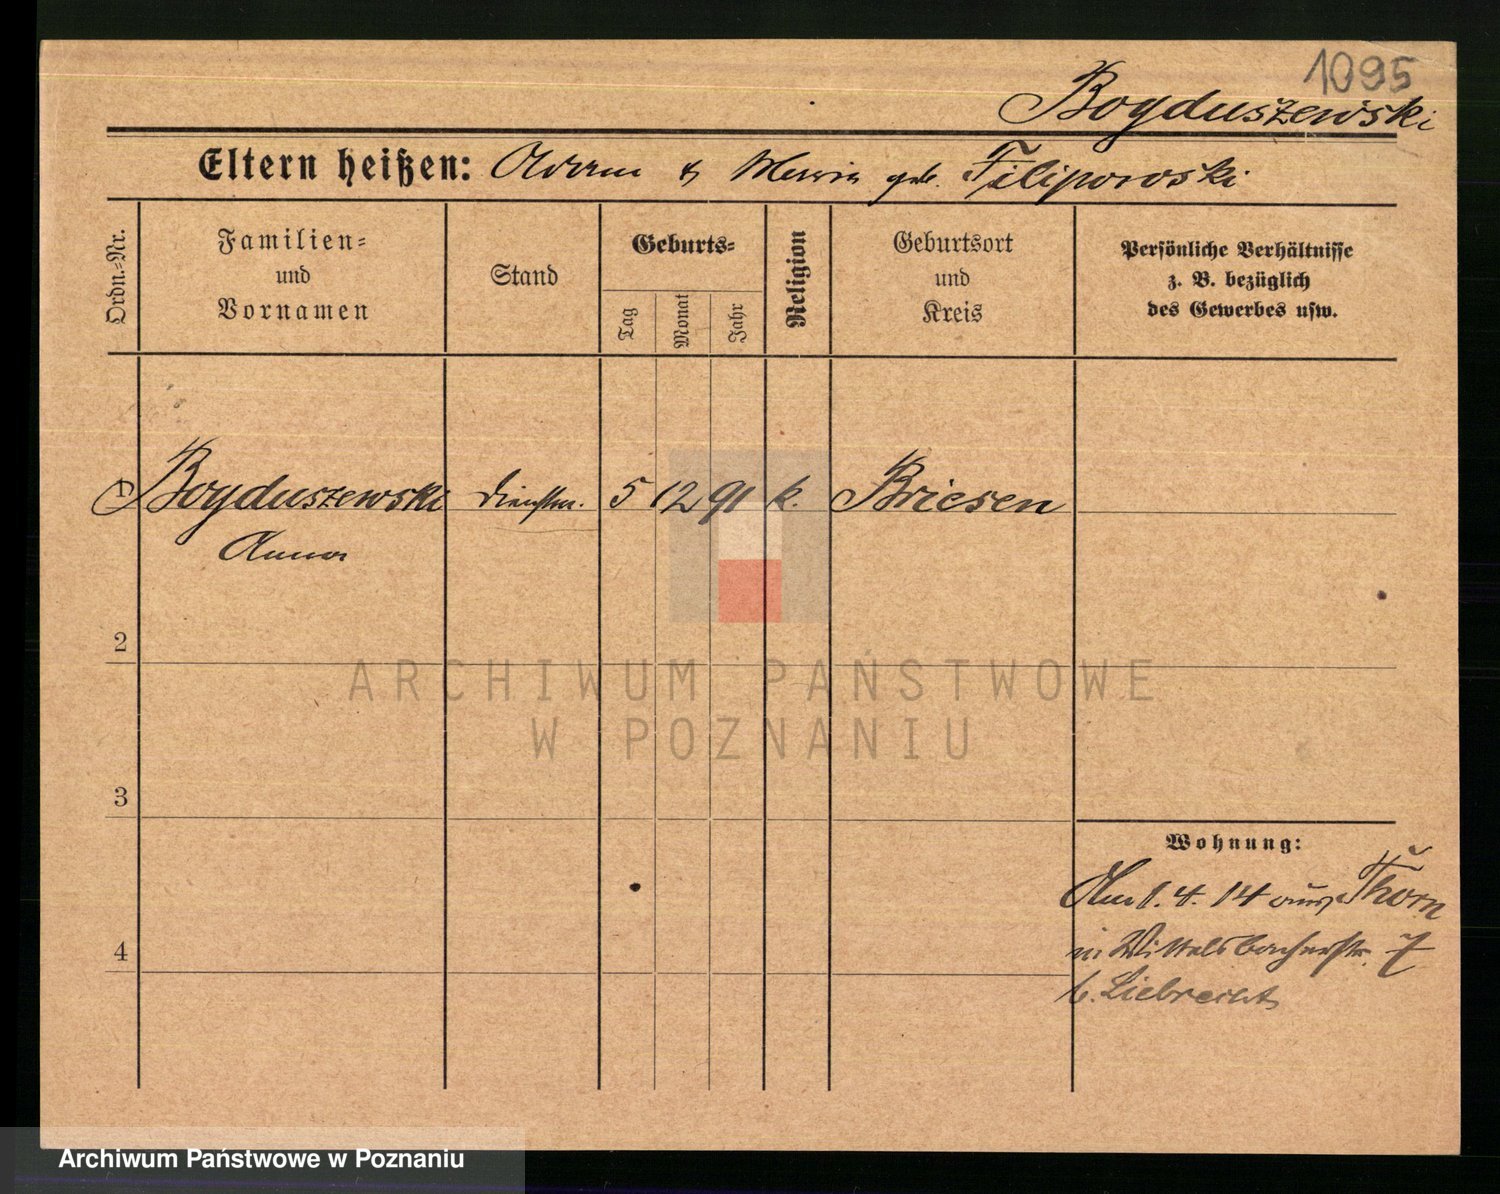 1095
Bogduszewski
Eltern heißen: Adam & Maria geb. Filipowski
Ordn.-Nr.
Familien-
und
Vornamen
Stand
Geburts-
Tag
Monat
Jahr
Religion
Geburtsort
und
Kreis
Persönliche Verhältnisse
z. B. bezüglich
des Gewerbes usw.
1 Bogduszewski Dienstm. 5 12 91 k. Briesen
Anna
2
ARCHIWUM PAŃSTWOWE
W POZNANIU
3
Wohnung:
Am 1. 4. 14 aus Thorn
4
in Wittelsbacherstr. 7
b. Liebrecht
Archiwum Państwowe w Poznaniu